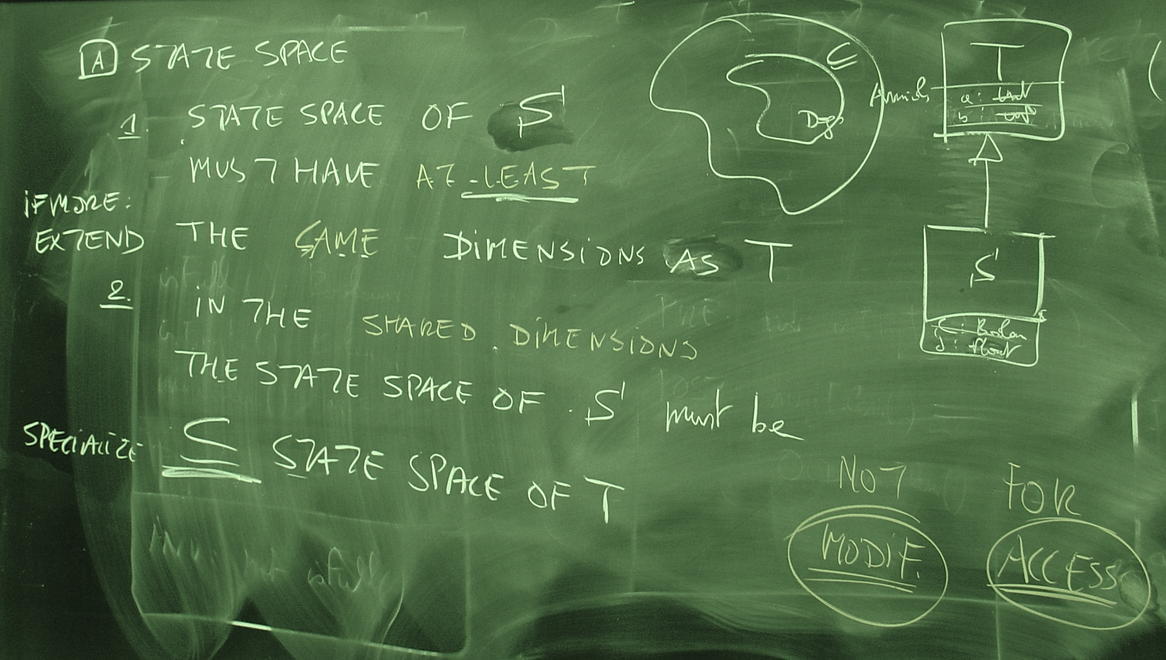 A STATE SPACE
1. STATE SPACE OF S
MUST HAVE AT LEAST
IF MORE:
EXTEND
THE SAME DIMENSIONS AS T
2. IN THE SHARED DIMENSIONS
THE STATE SPACE OF S must be
SPECIALIZE
⊆ STATE SPACE OF T
T
a:
b:
S
: Boolean
: float
NOT
MODIF.
FOR
ACCESS